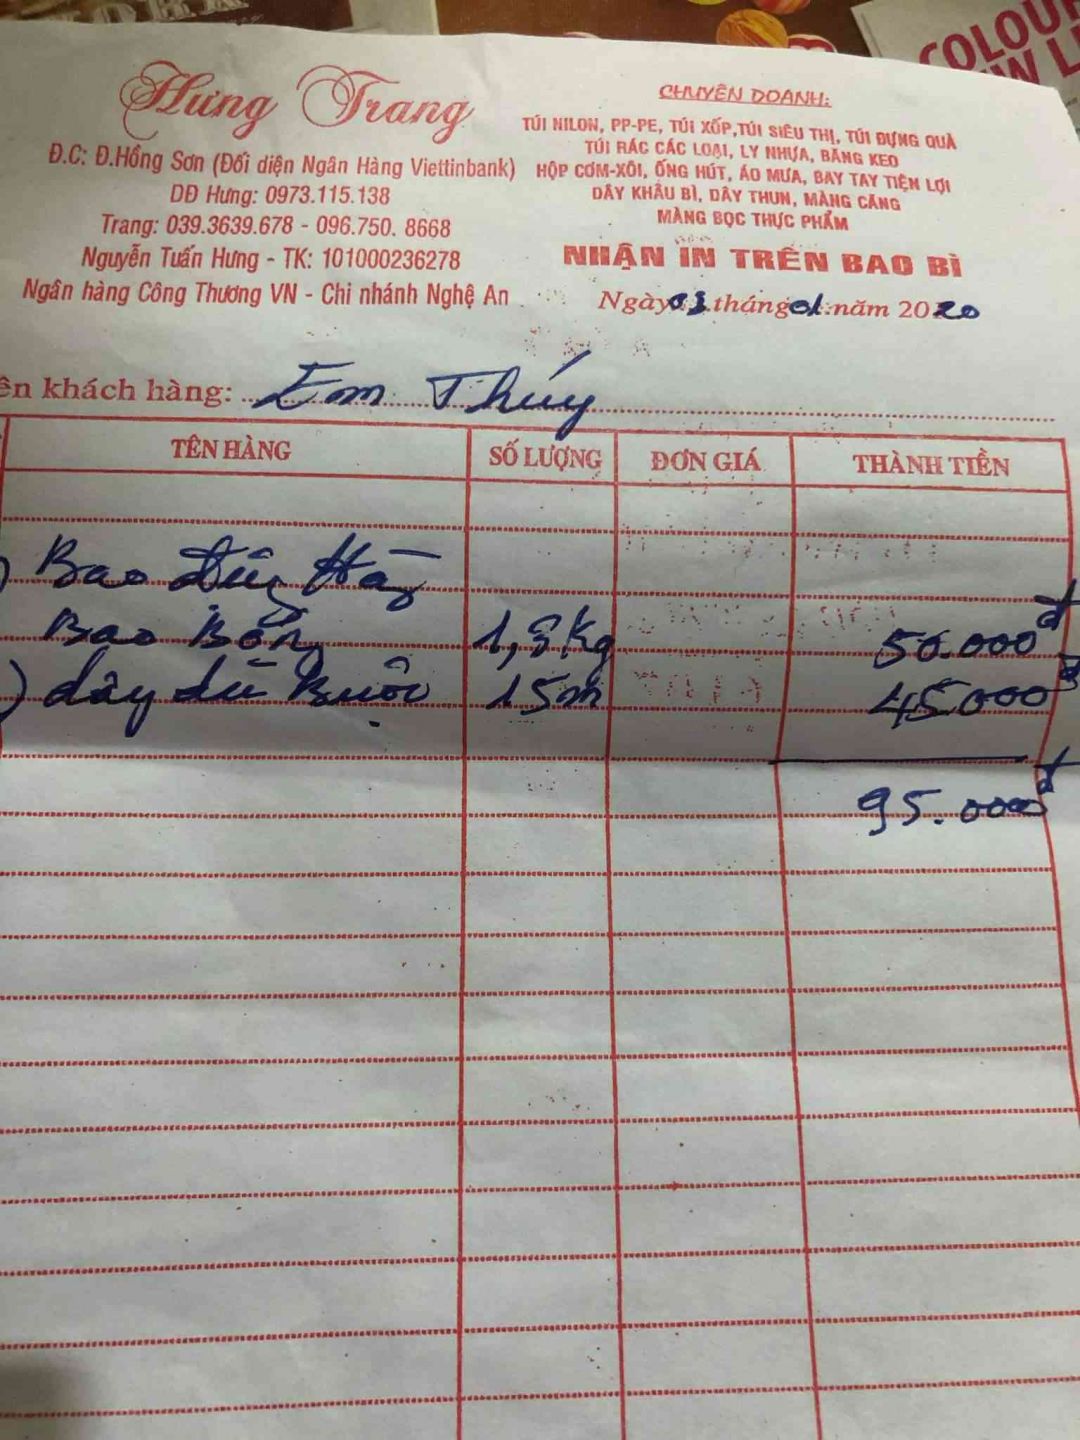 Hưng Trang
Đ.C: Đ.Hồng Sơn (Đối diện Ngân Hàng Viettinbank)
DĐ Hưng: 0973.115.138
Trang: 039.3639.678 - 096.750. 8668
Nguyễn Tuấn Hưng - TK: 101000236278
Ngân hàng Công Thương VN - Chi nhánh Nghệ An
CHUYÊN DOANH:
TÚI NILON, PP-PE, TÚI XỐP,TÚI SIÊU THỊ, TÚI ĐỰNG QUÀ
TÚI RÁC CÁC LOẠI, LY NHỰA, BĂNG KEO
HỘP CƠM-XÔI, ỐNG HÚT, ÁO MƯA, BAY TAY TIỆN LỢI
DÂY KHÂU BÌ, DÂY THUN, MÀNG CĂNG
MÀNG BỌC THỰC PHẨM
NHẬN IN TRÊN BAO BÌ
Ngày 03 tháng 01 năm 2020
ên khách hàng: Em Thúy
TÊN HÀNG SỐ LƯỢNG ĐƠN GIÁ THÀNH TIỀN
Bao đựng Hàng
Bao Bóng 1,3kg 50.000đ
) dây dù Buộc 15m 45000đ
95.000đ
COLOUR